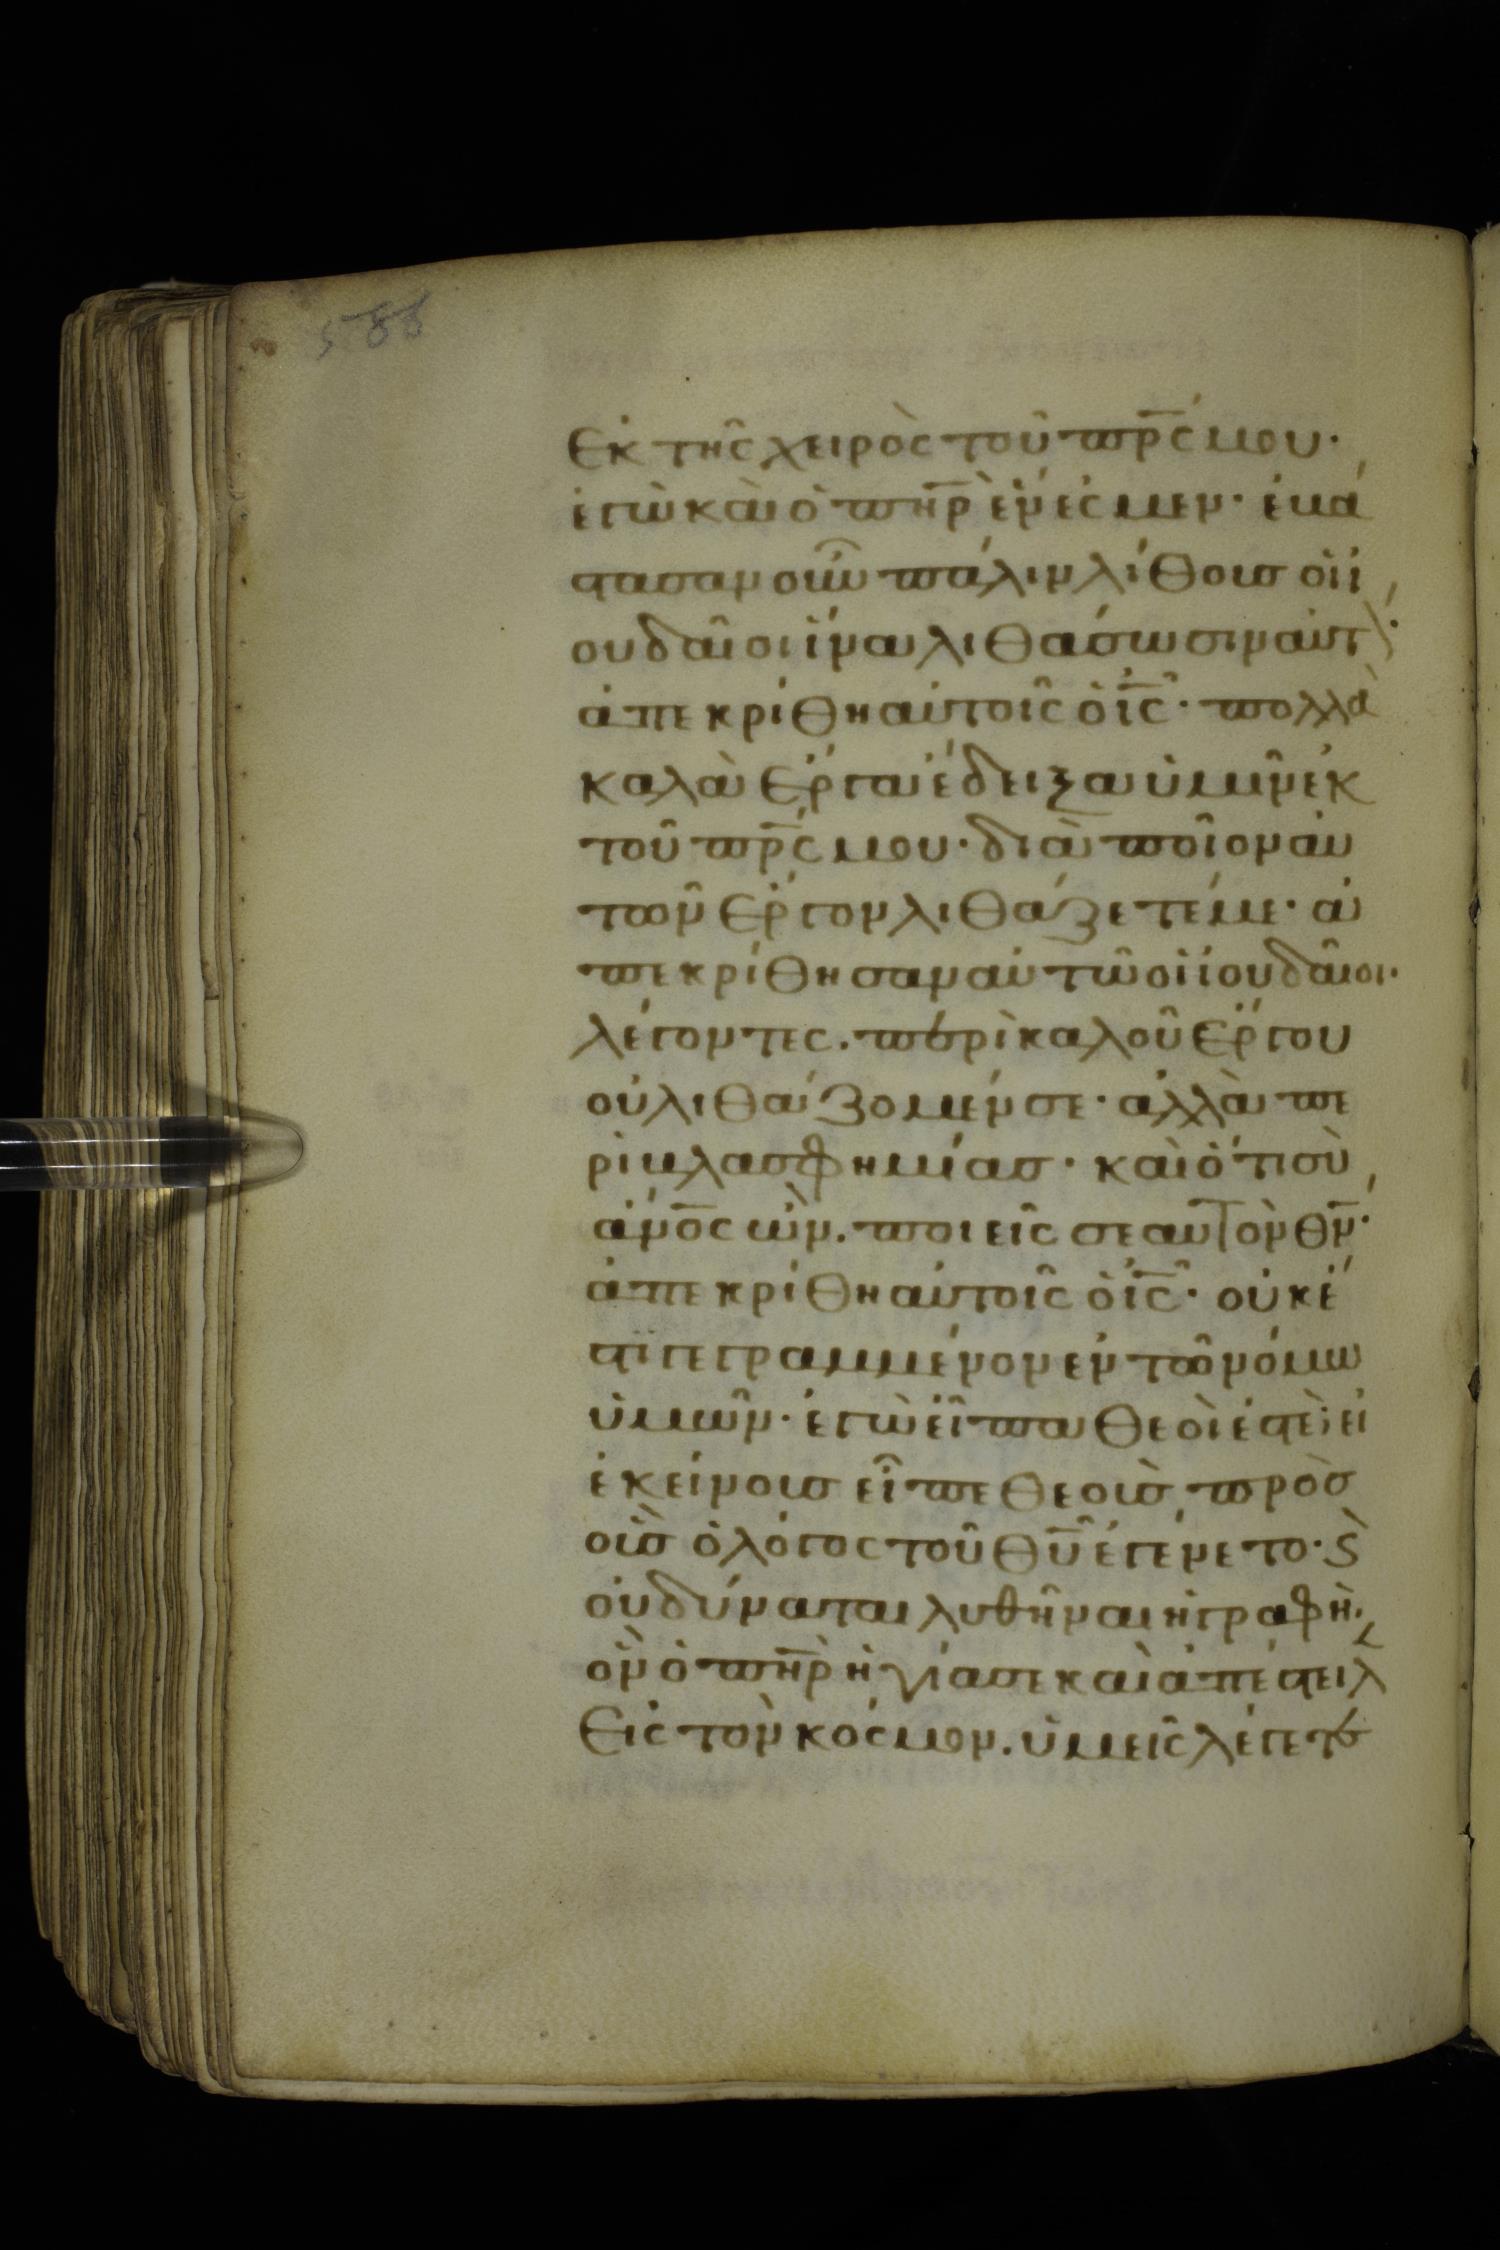 588
ἐκ τῆς χειρὸς τοῦ πρ̅ς μου·
ἐγὼ καὶ ὁ πη̅ρ ἕν ἐσμεν· ἐβά
στασαν οὖν πάλιν λίθους οἱ ἰ
ουδαῖοι ἵνα λιθάσωσιν αὐτ̀·
ἀπεκρίθη αὐτοῖς ὁ ι̅ς· πολλὰ
καλὰ ἔργα ἔδειξα ὑμῖν ἐκ
τοῦ πρ̅ς μου· διὰ ποῖον αὐ
τῶν ἔργον λιθάζετέ με· ἀ
πεκρίθησαν αὐτῶ οἱ ἰουδαῖοι·
λέγοντες. περὶ καλοῦ ἔργου
οὐ λιθάζομέν σε· ἀλλὰ πε
ρὶ βλασφημίας· καὶ ὅτι σὺ
ἄνο̅ς ὢν. ποιεῖς σεαυτὸν θ̅ν·
ἀπεκρίθη αὐτοῖς ὁ ι̅ς· οὐκ ἔ
στι γεγραμμένον ἐν τῶ νόμω
ὑμῶν· ἐγὼ εἶπα θεοί ἐστε; εἰ
ἐκείνους εἶπε θεοὺς πρὸς
οὓς ὁ λόγος τοῦ θ̅υ ἐγένετο· ϗ
οὐ δύναται λυθῆναι ἡ γραφὴ·
ὃν ὁ πη̅ρ ἡγίασε καὶ ἀπέστειλ
εἰς τὸν κόσμον. ὑμεῖς λέγετε